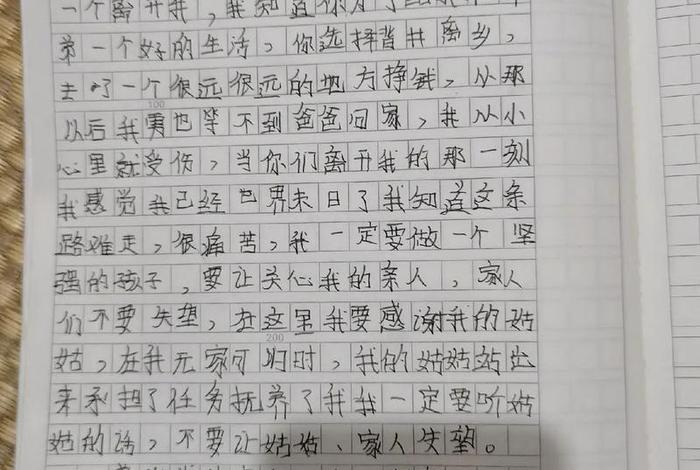 一个离开我，我知道你为了给我和
弟一个好的生活，你选择背井离乡，
去了一个很远很远的地方挣钱，从那
100
以后我再也等不到爸爸回家，我从小
心里就受伤，当你们离开我的那一刻
我感觉我已经世界末日了我知道这条
路难走，很痛苦，我一定要做一个坚
强的孩子，要让关心我的亲人，家人
们不要失望，在这里我要感谢我的姑
200
姑，在我无家可归时，我的姑姑站出
来承担了任务抚养了我我一定要听姑
姑的话，不要让姑姑、家人失望。